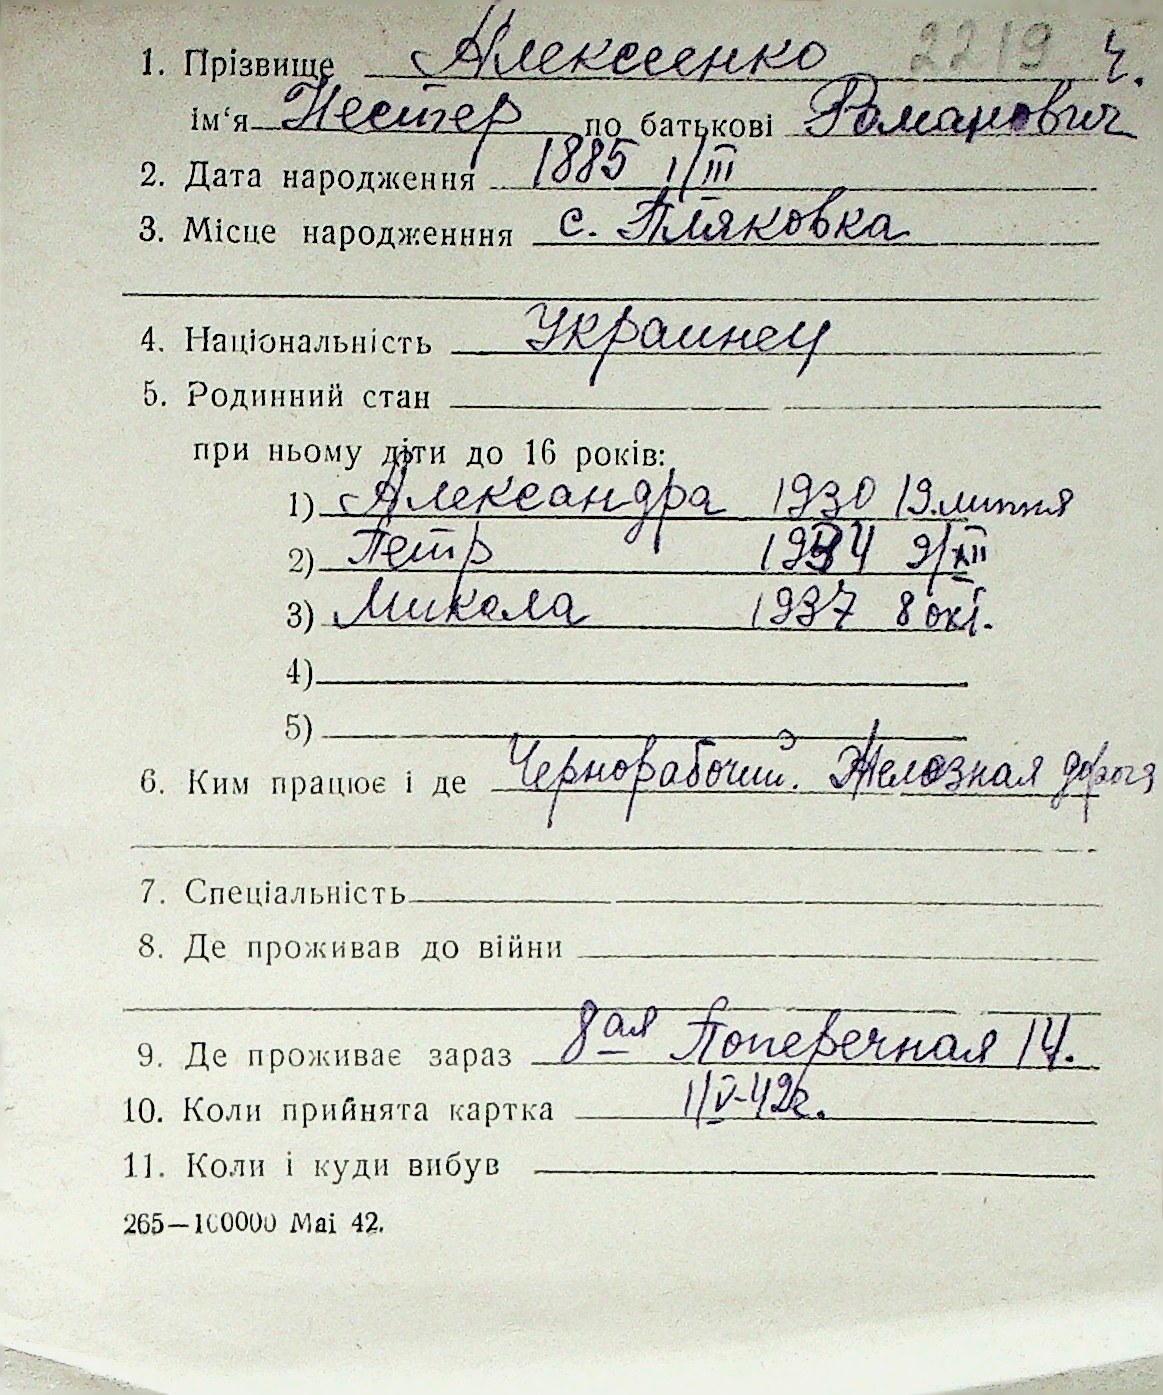 1. Прізвище Алексеенко 2219 ч.
ім‘я Нестер по батькові Романович
2. Дата народження 1885 1/III
3. Місце народженння с. Пляковка
4. Національність Украинец
5. Родинний стан
при ньому діти до 16 років:
1) Александра 1930 19. липня
2) Петр 1934 9/XII
3) Микола 1937 8 окт.
4)
5)
6. Ким працює і де Чернорабочий. Железная дорога
7. Спеціальність
8. Де проживав до війни
9. Де проживає зараз 8ая Поперечная 14.
10. Коли прийнята картка 1/V-42г.
11. Коли і куди вибув
265—100000 Mai 42.